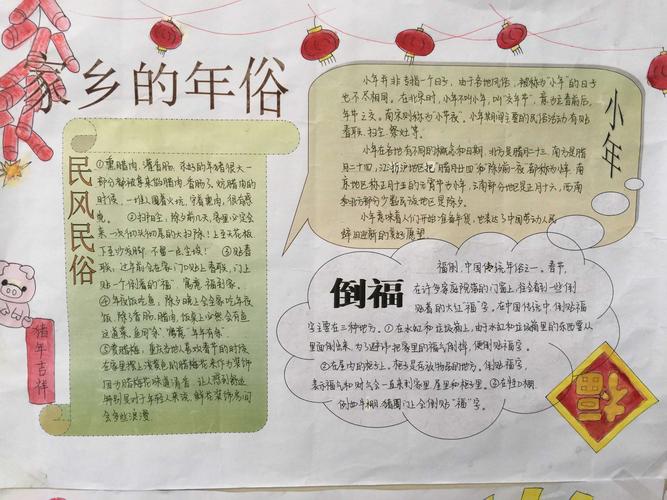 家乡的年俗
民风民俗
①熏腊肉、灌香肠。
部分都被拿来做腊肉、香肠了。熏腊肉的
时候,一堆人围着火坑,守着熏肉,很有感
觉。②扫扬尘,除夕前几天,家里必定会
来一次彻彻底底的大扫除!上至天花板,
下至沙发脚,不留一点尘埃!③贴春
联,过年前会在客门贴上春联,门上
贴一个倒着的“福”,寓意,福到家。
④年夜饭吃鱼,除夕晚上会全家吃年夜
饭,除了香肠、腊肉,饭桌上必然会有鱼
这道菜,鱼同“余”,寓意,“年年有余”
⑤赏腊梅,重庆当地人喜欢春节的时候
在家里摆上浅黄色的腊梅花来作为装饰
因为腊梅花味道清香,让人感到舒适
特别是对于年轻人来说,鲜花装饰房间
会多些浪漫。
猪年吉祥
小年
小年并非专指一个日子,由于各地风俗,被称为“小年”的日子
也不尽相同。在北宋时,小年不叫小年,叫“交年节”,意为
年年之交。南宋则称为“小节夜”。小年期间主要的民俗活动有贴
春联、扫尘、祭灶等。
小年在各地有不同的概念和日期,北方是腊月二十三,南方是腊
月二十四,江浙沪地区把“腊月廿四”和“除夕前一夜”都称为小年,南
京地区称正月十五的元宵节为小年,云南部分地区是正月十六,西南
和北方部分少数民族地区是除夕。
小年意味着人们开始准备年货,也表达了中国劳动人民
辞旧迎新的美好愿望
倒福
福倒,中国传统年俗之一。春节,
在许多家庭院落的门窗上,往会看到一些倒
贴着的大红“福”字。在中国传统中,倒贴福
字主要在三种地方。①在水缸和垃圾箱上,由于水缸和垃圾箱里的东西要从
里面倒出来,为了避讳把家里的福气倒掉,便倒贴福字。
②在屋内的柜子上。柜子是存放物品的地方。倒贴福字,
表示福气和财气会一直来到家里、屋里和柜子里。③
例如牛棚、猪圈门上会倒贴“福”字。
福